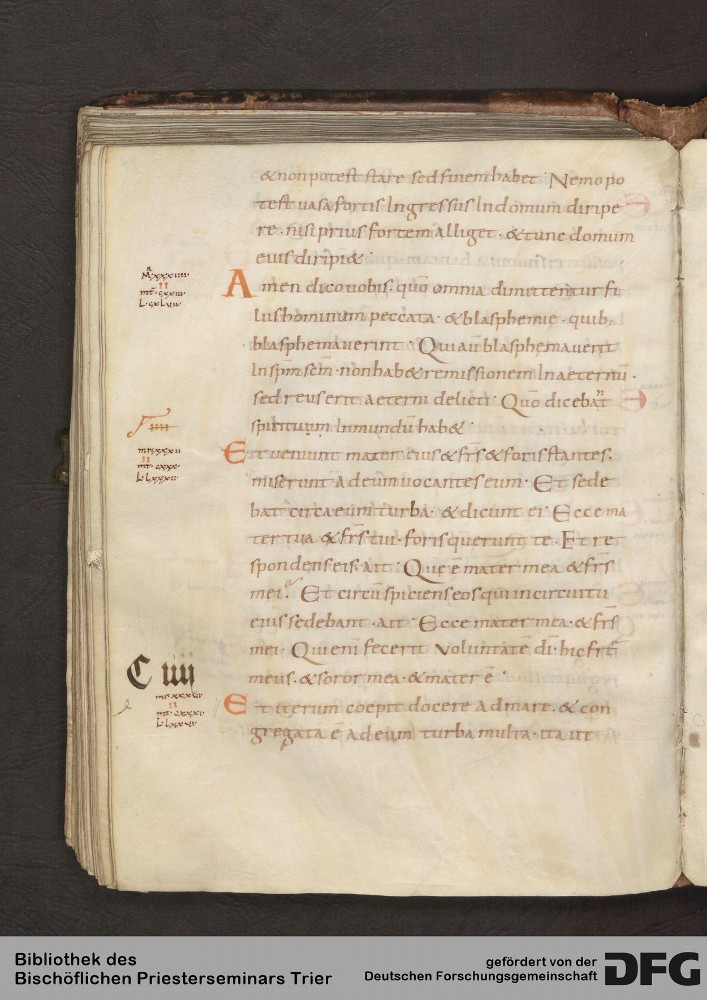 & non potest stare sed finem habet · Nemo po
test uasa fortis Ingressus In domum diripe
re · nisi prius fortem alliget · & tunc domum
eius diripi& ·
M xxxiiii
mt cxxiii
L cxlviii
Amen dico uobis · quō omnia dimittentur fi
lus hominum peccata · & blasphemie · quib;
blasphemauerint · Qui aū blasphemauerit
In spm̄ scm̄ · non hab& remissionem In aeternū ·
sed reus erit aeterni delicti · Quō dicebat
spiritum Inmundū hab& ·
mr xxxv
mt cxxx
L lxxxii
Et ueniunt mater eius & frs̄ & foris stantes ·
miserunt ad eum uocantes eum · Et sede
bat circa eum turba · & dicunt ei · Ecce ma
ter tua & frs̄ tui · foris querunt te · Et re
spondens eis · ait · Que ē mater mea & frs̄
mei · Et circū spiciens eos qui in circuitu
eius sedebant · ait · Ecce mater mea · & frs̄
mei · Qui eni fecerit uoluntatē dī · hic frt̄
meus · & soror mea · & mater ē ·
C iiii
mt cxxxi
Et iterum coepit docere ad mare · & con
gregata ē ad eum turba multa · ita ut
Bibliothek des
Bischöflichen Priesterseminars Trier
gefördert von der
Deutschen Forschungsgemeinschaft
DFG